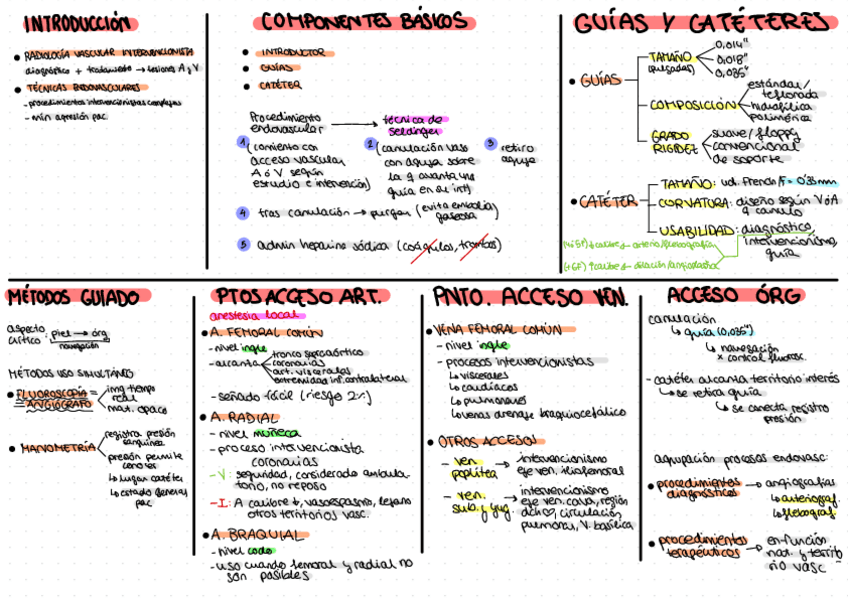 INTRODUCCIÓN
• RADIOLOGÍA VASCULAR INTERVENCIONISTA
diagnóstico + tratamiento → lesiones A y V
• TÉCNICAS ENDOVASCULARES
- procedimientos intervencionistas complejos
- mín agresión pac
COMPONENTES BÁSICOS
• INTRODUCTOR
• GUÍAS
• CATÉTER
Procedimiento endovascular → técnica de seldinger
1 (comienza con
acceso vascular
A ó V según
estudio e intervención)
2 (canulación vaso
con aguja sobre
la q avanza una
guía en su int)
3 retiro
aguja
4 tras canulación → purgar (evita embolia
gaseosa)
5 admin heparina sódica (coágulos, trombos)
GUÍAS Y CATÉTERES
• GUÍAS
TAMAÑO
(pulgadas)
0,014"
0,018"
0,035"
COMPOSICIÓN
estándar/
teflonada
hidrofílica
polimérica
GRADO
RIGIDEZ
suave/floppy
convencional
de soporte
• CATÉTER
TAMAÑO: ud. French/F = 0'33mm
CURVATURA: diseño según V ó A
q canulo
USABILIDAD: diagnóstico,
intervencionismo,
guía
MÉTODOS GUIADO
aspecto
crítico:
piel → órg
navegación
MÉTODOS USO SIMULTÁNEO
• FLUOROSCOPIA =
= ANGIÓGRAFO
img tiempo
real
mat. opaco
• MANOMETRÍA
registra presión
sanguínea
presión permite
conocer
↳ lugar catéter
↳ estado general
pac
PTOS ACCESO ART.
anestesia local
• A. FEMORAL COMÚN
- nivel ingle
- alcanza
tronco supraaórtico
coronarias
art. viscerales
extremidad inf. contralateral
- sellado fácil (riesgo 2%)
• A. RADIAL
- nivel muñeca
- proceso intervencionista
coronarias
- V: seguridad, considerado ambula-
torio, no reposo
- I: A calibre ↓, vasoespasmo, lejano
otros territorios vasc.
• A. BRAQUIAL
- nivel codo
- uso cuando femoral y radial no
son posibles
PNTO. ACCESO VEN.
• VENA FEMORAL COMÚN
- nivel ingle
- procesos intervencionistas
↳ viscerales
↳ cardíacos
↳ pulmonares
↳ venas drenaje braquiocefálico
• OTROS ACCESOS
- ven.
poplítea
→ intervencionismo
eje ven. iliofemoral
- ven.
sub. y yug.
→ intervencionismo
eje ven. cava, región
dch ♡, circulación
pulmonar, V. basílica
ACCESO ÓRG
canulación
↳ guía (0,035")
↳ navegación
x control fluorosc.
- catéter alcanza territorio interés
↳ se retira guía
↳ se conecta registro
presión
agrupación procesos endovasc:
• procedimientos
diagnósticos
→ angiografías
↳ arteriograf.
↳ flebograf.
• procedimientos
terapéuticos
→ en función
nat. y territo
rio vasc